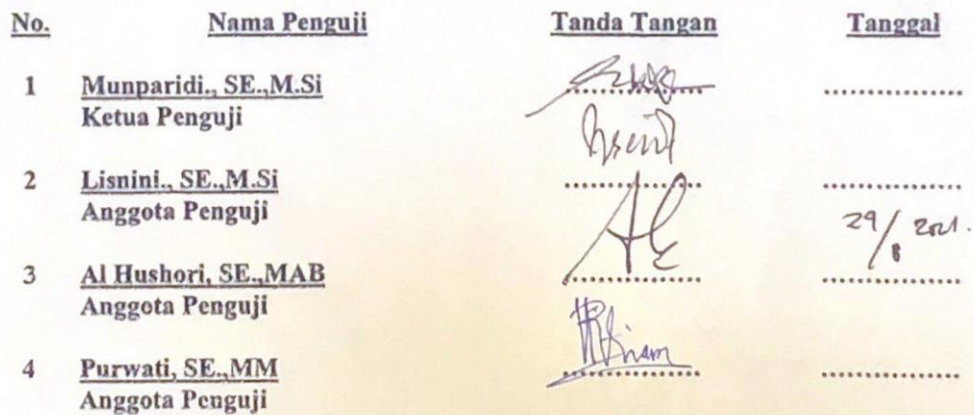 No. Nama Penguji Tanda Tangan Tanggal
1 Munparidi., SE.,M.Si ............... ...............
Ketua Penguji
2 Lisnini., SE.,M.Si ............... ...............
Anggota Penguji
29/8 2021.
3 Al Hushori, SE.,MAB ............... ...............
Anggota Penguji
4 Purwati, SE.,MM ............... ...............
Anggota Penguji